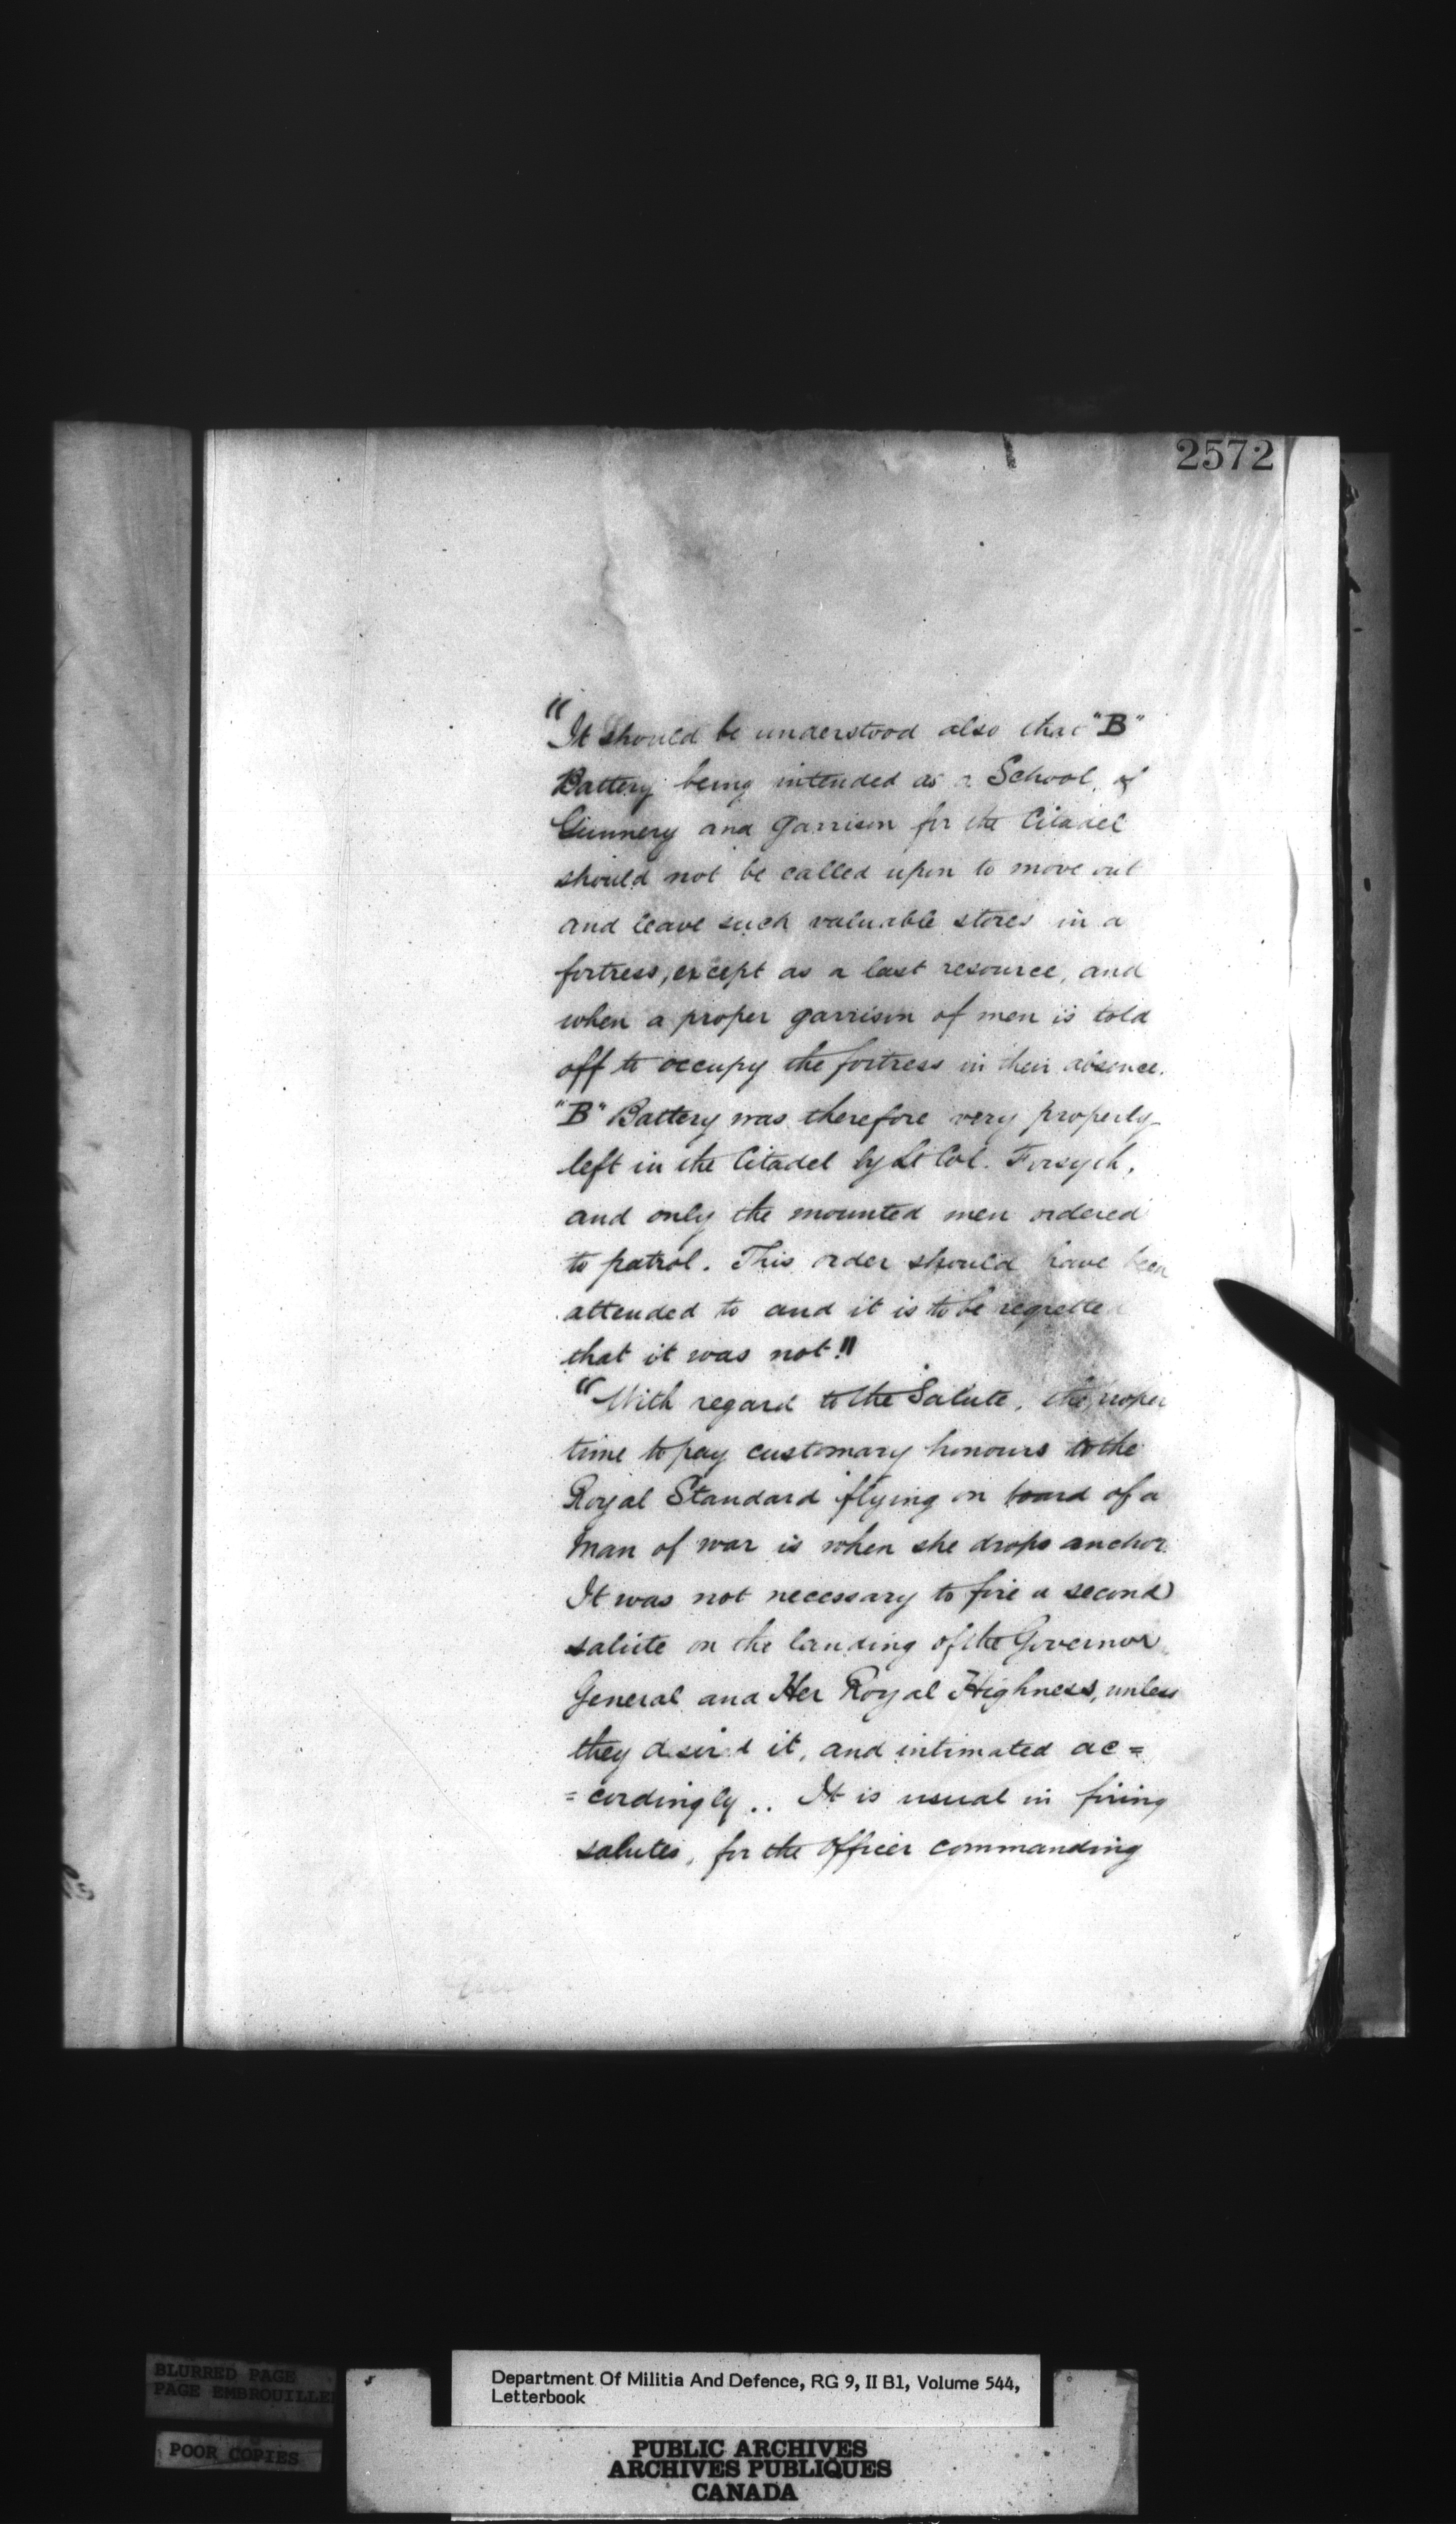 2572
"It should be understood also that "B"
Battery being intended as a School of
Gunnery and Garrison for the Citadel
should not be called upon to move out
and leave such valuable stores in a
fortress, except as a last resource, and
when a proper garrison of men is told
off to occupy the fortress in their absence.
"B" Battery was therefore very properly
left in the Citadel by Lt Col. Forsyth,
and only the mounted men ordered
to patrol. This order should have been
attended to and it is to be regretted
that it was not."
"With regard to the Salute, the proper
time to pay customary honours to the
Royal Standard flying on board of a
Man of war is when she drops anchor.
It was not necessary to fire a second
salute on the landing of the Governor
General and Her Royal Highness, unless
they desired it, and intimated ac=
=cordingly.. It is usual in firing
salutes, for the officer commanding
BLURRED PAGE
PAGE EMBROUILLEE
POOR COPIES
Department Of Militia And Defence, RG 9, II B1, Volume 544,
Letterbook
PUBLIC ARCHIVES
ARCHIVES PUBLIQUES
CANADA